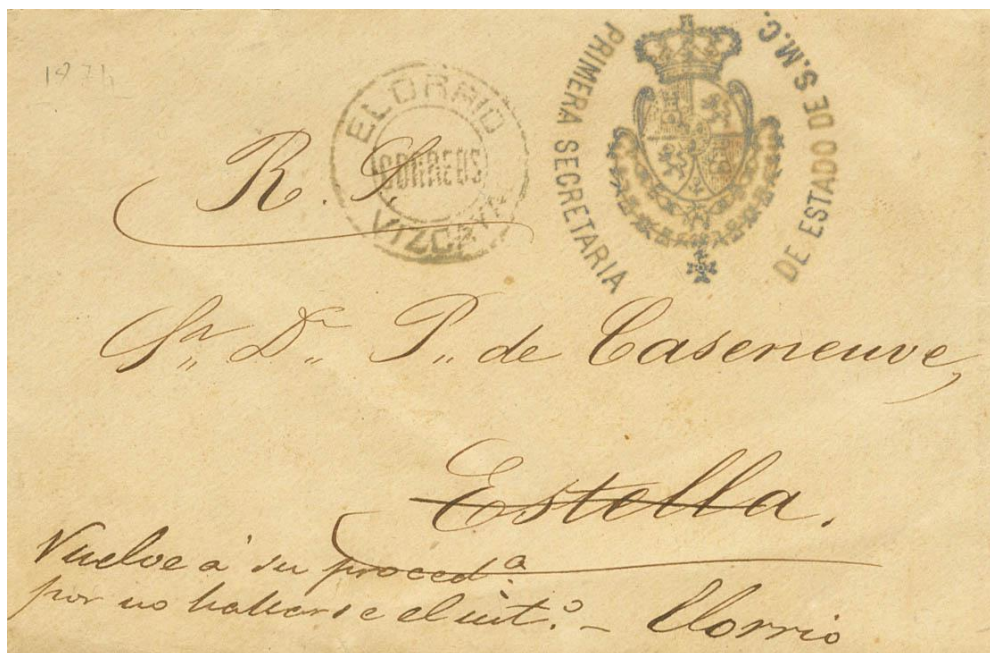 1874
ELORRIO
CORREOS
VIZCAYA
PRIMERA SECRETARIA
DE ESTADO DE S.M.C.
R. S.
Sr. Dn. P. de Caseneuve,
Estella.
Vuelve á su proced.ª
por no hallarse el int.º - Elorrio